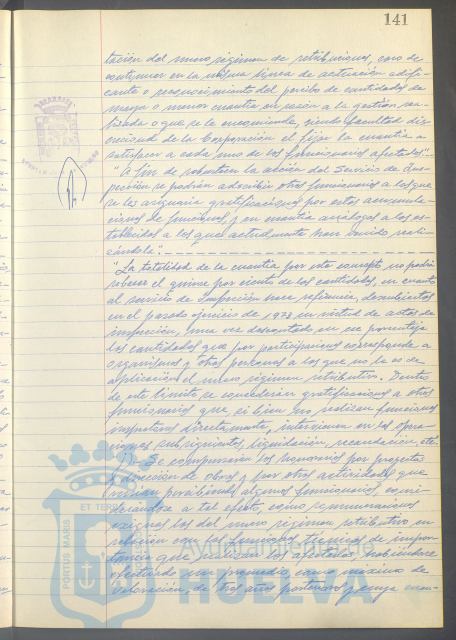 141
tación del nuevo régimen de retribuciones, caso de
continuar en la misma línea de actuación
cante o reconocimiento del percibo de cantidades de
mayor o menor cuantía en razón a la gestión rea-
lizada o que se le encomiende, siendo facultad dis-
crecional de la Corporación el fijar la cuantía a
satisfacer a cada uno de los funcionarios afectados".
"A fin de robustecer la acción del Servicio de Ins-
pección se podrán adscribir otros funcionarios a los que
se les asignaría gratificaciones por estas acumula-
ciones de funciones y en cuantía análogas a los es-
tablecidos a los que actualmente han venido reali-
zándola".
"La totalidad de la cuantía por este concepto no podrá
rebasar el quince por ciento de las cantidades, en cuanto
al servicio de Inspección hace referencia, descubiertas
en el pasado ejercicio de 1978 en virtud de actas de
inspección, una vez descontado, en ese porcentaje
las cantidades que por participaciones corresponde a
organismos y otras personas a los que no le es de
aplicación el nuevo régimen retributivo. Dentro
de este límite se concederán gratificaciones a otros
funcionarios que si bien no realizan funciones
inspectoras directamente, intervienen en las opera-
ciones subsiguientes, liquidación, recaudación, etc.
Se los honorarios por proyectos
y dirección de obras y por otras actividades que
venían percibiendo algunos funcionarios,
a tal efecto, como remuneraciones
las del nuevo régimen retributivo en
relación con las funciones técnicas de impor-
tancia que realizan los afectados, habiéndose
efectuado un promedio como máximo de
valoración, de tres años y cuya
PORTUS MARIS
ET TERRAE
Ayuntamiento de
HUELVA